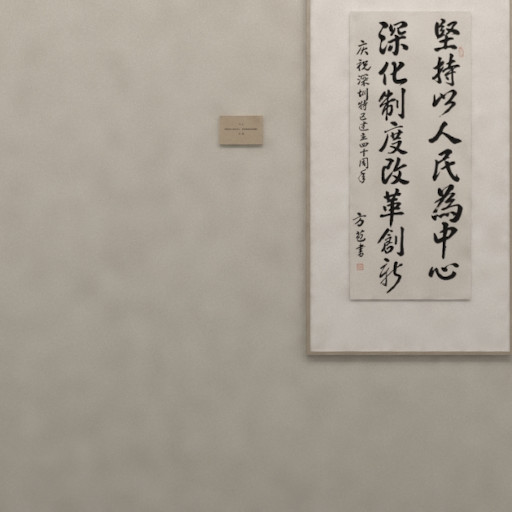 堅持以人民為中心
深化制度改革創新
庆祝深圳特已建立四十周年
方苞書